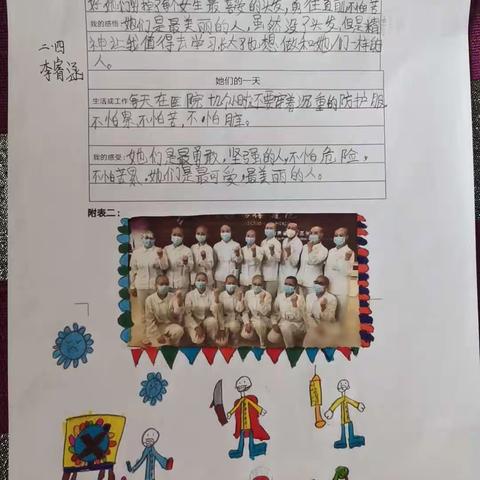 我的感悟：她们是最美丽的人，虽然没了头发，但是精
神让我值得去学习，长大我也想做和她们一样的
人。
二·四
李睿涵
她们的一天
生活或工作：每天在医院切个小时，还要穿着沉重的防护服
不怕累，不怕苦，不怕脏。
我的感受：她们是最勇敢，坚强的人，不怕危险，
不怕苦累，她们是最可爱，最美丽的人。
附表二：